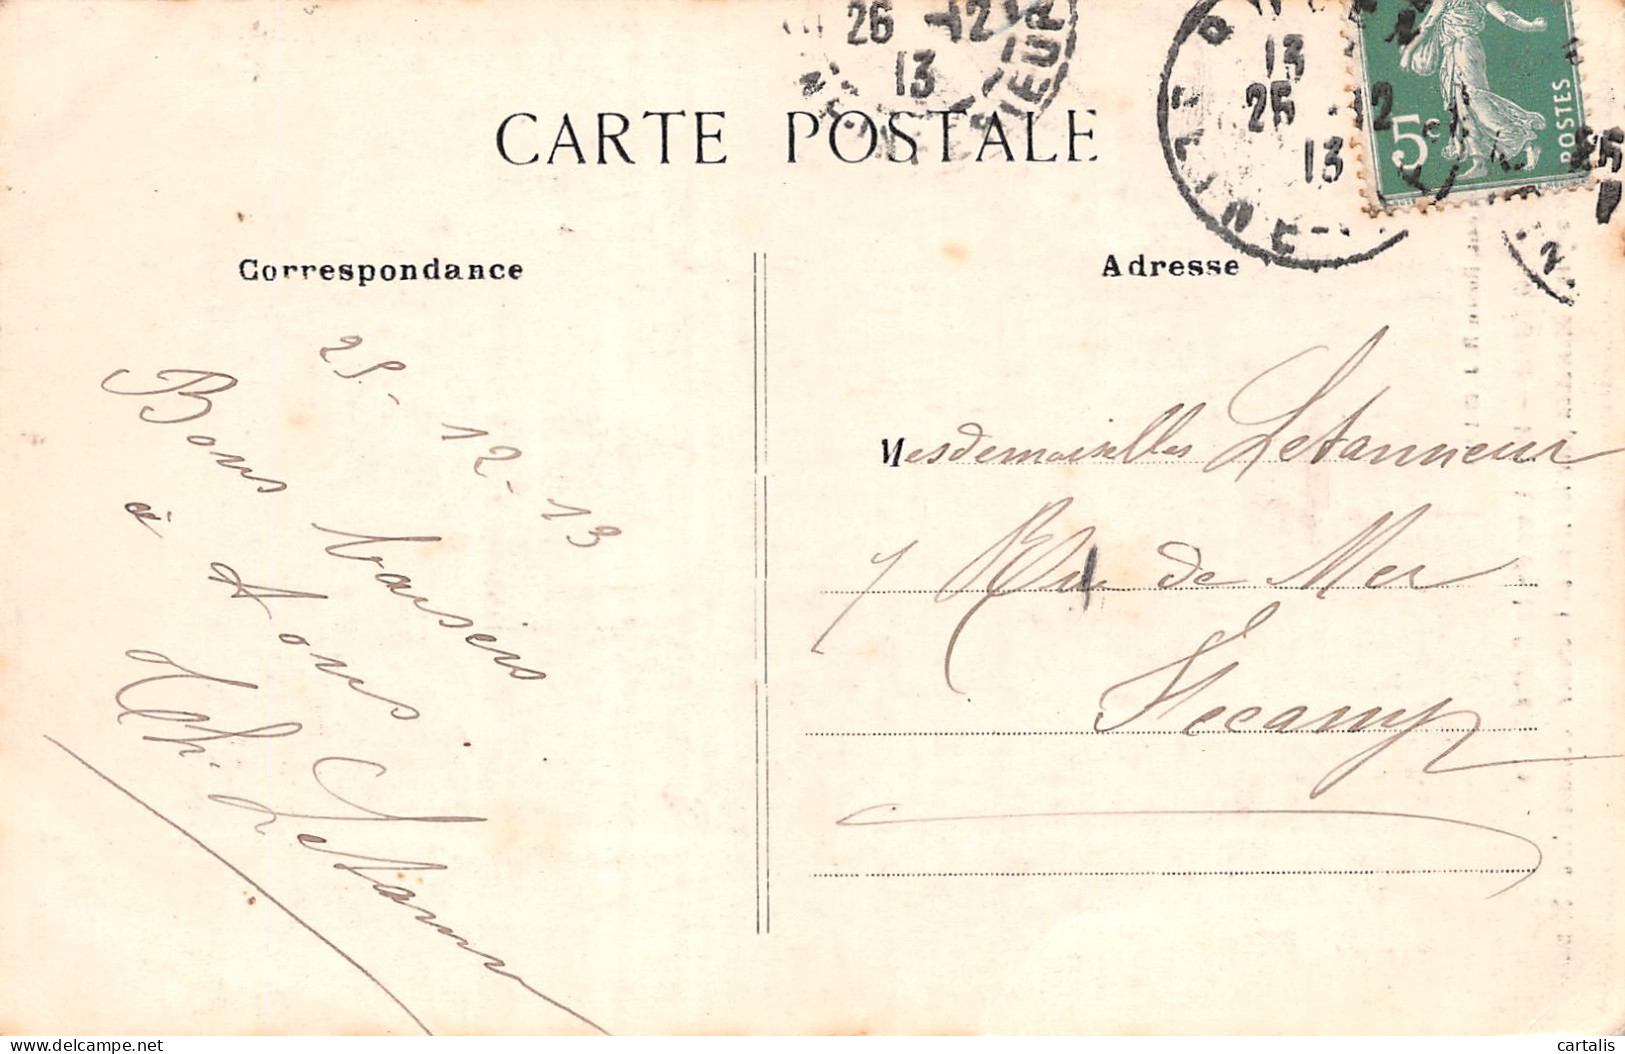 26 -12
13
IEUR
CARTE POSTALE
13
25 12
13
5c
POSTES
25
Correspondance
Adresse
25-12-13
Bons baisers
à tous
Th. Letanneur
Mesdemoiselles Letanneur
7 Rue de Mer
Fecamp
cartalis
delcampe.net